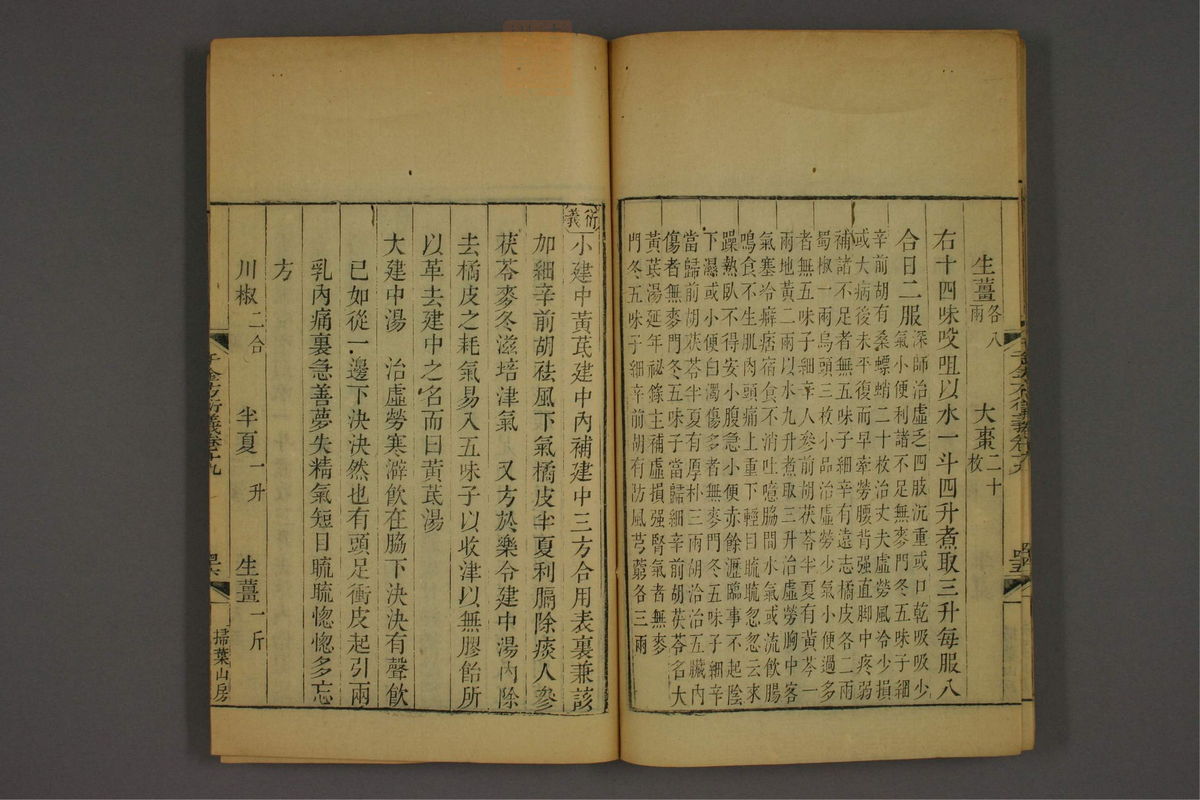 生薑各八兩　大棗二十枚
右十四味㕮咀以水一斗四升煮取三升每服八
合日二服深師治虛乏四肢沉重或口乾吸吸少
氣小便利諸不足無麥門冬五味子細
辛前胡有桑螵蛸二十枚治丈夫虛勞風冷少損
或大病後未平復而早牽勞腰背强直脚中疼弱
補諸不足者無五味子細辛有遠志橘皮各二兩
蜀椒一兩烏頭三枚小品治虛勞少氣小便過多
者無五味子細辛人參前胡茯苓半夏有黃芩一
兩地黃二兩以水九升煮取三升治虛勞胸中客
氣塞冷癖痞宿食不消吐噫脇間水氣或流飲腸
鳴食不生肌肉頭痛上重下輕目䀮䀮忽忽云來
躁熱臥不得安小腹急小便赤餘瀝臨事不起陰
下濕或小便白濁傷多者無麥門冬五味子細辛
當歸前胡茯苓半夏有厚朴三兩胡洽治五臟內
傷者無麥門冬五味子當歸細辛前胡茯苓名大
黃茋湯延年祕錄主補虛損强腎氣者無麥
門冬五味子細辛前胡有防風芎藭各三兩
衍義
小建中黃茋建中內補建中三方合用表裏兼該
加細辛前胡祛風下氣橘皮半夏利膈除痰人參
茯苓麥冬滋培津氣　又方於樂令建中湯內除
去橘皮之耗氣易入五味子以收津以無膠飴所
以革去建中之名而曰黃茋湯
大建中湯　治虛勞寒澼飲在脇下決決有聲飲
已如從一邊下決決然也有頭足衝皮起引兩
乳內痛裏急善夢失精氣短目䀮䀮惚惚多忘
方
川椒二合　半夏一升　生薑一斤
千金方衍義卷十九
掃葉山房